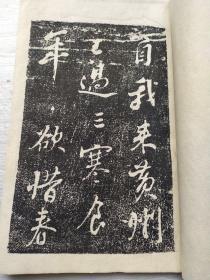 自我来黄州
已過三寒食
年年欲惜春